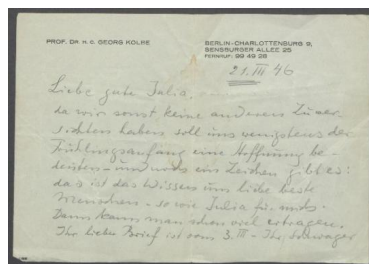 PROF. DR. H. C. GEORG KOLBE
BERLIN-CHARLOTTENBURG 9,
SENSBURGER ALLEE 25
FERNRUF: 99 49 26
21. III 46
Liebe gute Julia,
da wir sonst keine anderen Zuver-
sichten haben soll uns wenigstens der
Frühlingsanfang eine Hoffnung be-
deuten – und noch ein Zeichen gibt es:
das ist das Wissen um liebe beste
Menschen – so wie Julia für mich.
Dann kann man schon viel ertragen.
Ihr lieber Brief ist vom 3. III – Ihr Schwager